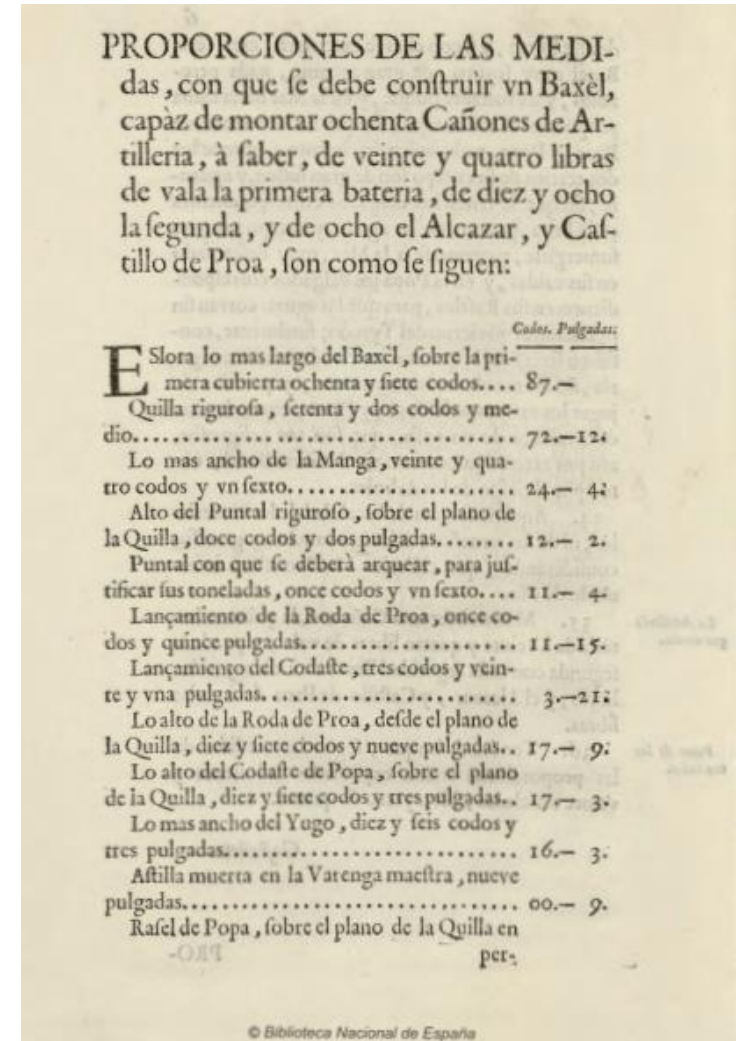 PROPORCIONES DE LAS MEDI-
das, con que ſe debe conſtruìr vn Baxèl,
capàz de montar ochenta Cañones de Ar-
tilleria, à ſaber, de veinte y quatro libras
de vala la primera bateria, de diez y ocho
la ſegunda, y de ocho el Alcazar, y Caſ-
tillo de Proa, ſon como ſe ſiguen:
Codos. Pulgadas.
ESlora lo mas largo del Baxèl, ſobre la pri-
mera cubierta ochenta y ſiete codos.... 87.—
Quilla riguroſa, ſetenta y dos codos y me-
dio.................................... 72.—12.
Lo mas ancho de la Manga, veinte y qua-
tro codos y vn ſexto...................... 24.— 4.
Alto del Puntal riguroſo, ſobre el plano de
la Quilla, doce codos y dos pulgadas........ 12.— 2.
Puntal con que ſe deberà arquear, para juſ-
tificar ſus toneladas, once codos y vn ſexto.... 11.— 4.
Lançamiento de la Roda de Proa, once co-
dos y quince pulgadas.................... 11.—15.
Lançamiento del Codaſte, tres codos y vein-
te y vna pulgadas........................ 3.—21.
Lo alto de la Roda de Proa, deſde el plano de
la Quilla, diez y ſiete codos y nueve pulgadas.. 17.— 9.
Lo alto del Codaſte de Popa, ſobre el plano
de la Quilla, diez y ſiete codos y tres pulgadas.. 17.— 3.
Lo mas ancho del Yugo, diez y ſeis codos y
tres pulgadas............................ 16.— 3.
Aſtilla muerta en la Varenga maeſtra, nueve
pulgadas................................ 00.— 9.
Raſel de Popa, ſobre el plano de la Quilla en
per-
© Biblioteca Nacional de España